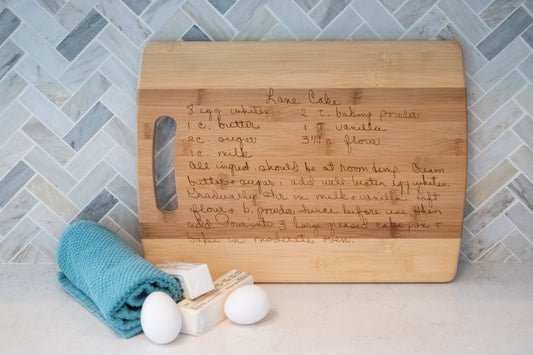 Lane Cake
8 egg whites 2 t. baking powder
1 c. butter 1 T. vanilla
2c. sugar 3¼ c. flour
1c. milk
All ingred. should be at room temp. Cream
butter & sugar, add well beaten egg whites.
Gradually stir in milk & vanilla. Sift
flour & b. powder twice before use then
add. Pour int 3 large greased cake pans &
bake in moderate oven.